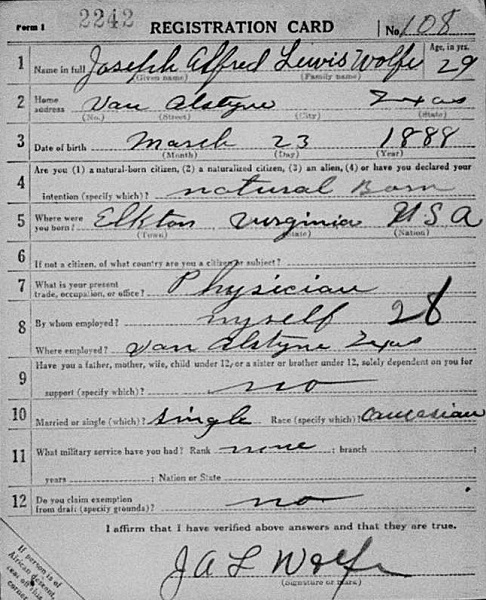 Form 1 2242 REGISTRATION CARD No. 108
1 Name in full Joseph Alfred Lewis Wolfe Age, in yrs. 29
(Given name) (Family name)
2 Home address Van Alstyne Texas
(No.) (Street) (City) (State)
3 Date of birth March 23 1888
(Month) (Day) (Year)
4 Are you (1) a natural-born citizen, (2) a naturalized citizen, (3) an alien, (4) or have you declared your
intention (specify which)? natural Born
5 Where were you born? Elkton Virginia USA
(Town) (State) (Nation)
6 If not a citizen, of what country are you a citizen or subject?
7 What is your present trade, occupation, or office? Physician
8 By whom employed? myself 28
Where employed? Van Alstyne Texas
9 Have you a father, mother, wife, child under 12, or a sister or brother under 12, solely dependent on you for
support (specify which)? no
10 Married or single (which)? Single Race (specify which)? Caucasian
11 What military service have you had? Rank none ; branch ;
years ; Nation or State
12 Do you claim exemption from draft (specify grounds)? no
I affirm that I have verified above answers and that they are true.
J A L Wolfe
(Signature or mark)
If person is of
African descent,